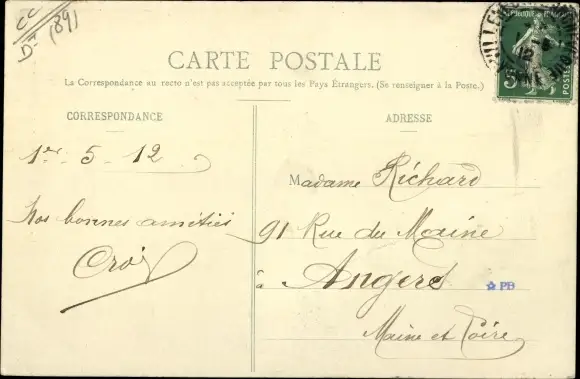 CC
Dt (89)
CARTE POSTALE
La Correspondance au recto n'est pas acceptée par tous les Pays Étrangers. (Se renseigner à la Poste.)
CORRESPONDANCE
1er - 5 - 12
Nos bonnes amitiés
ADRESSE
Madame Richard
91 Rue du Maine
à Angers
PB
Maine et Loire
POSTES